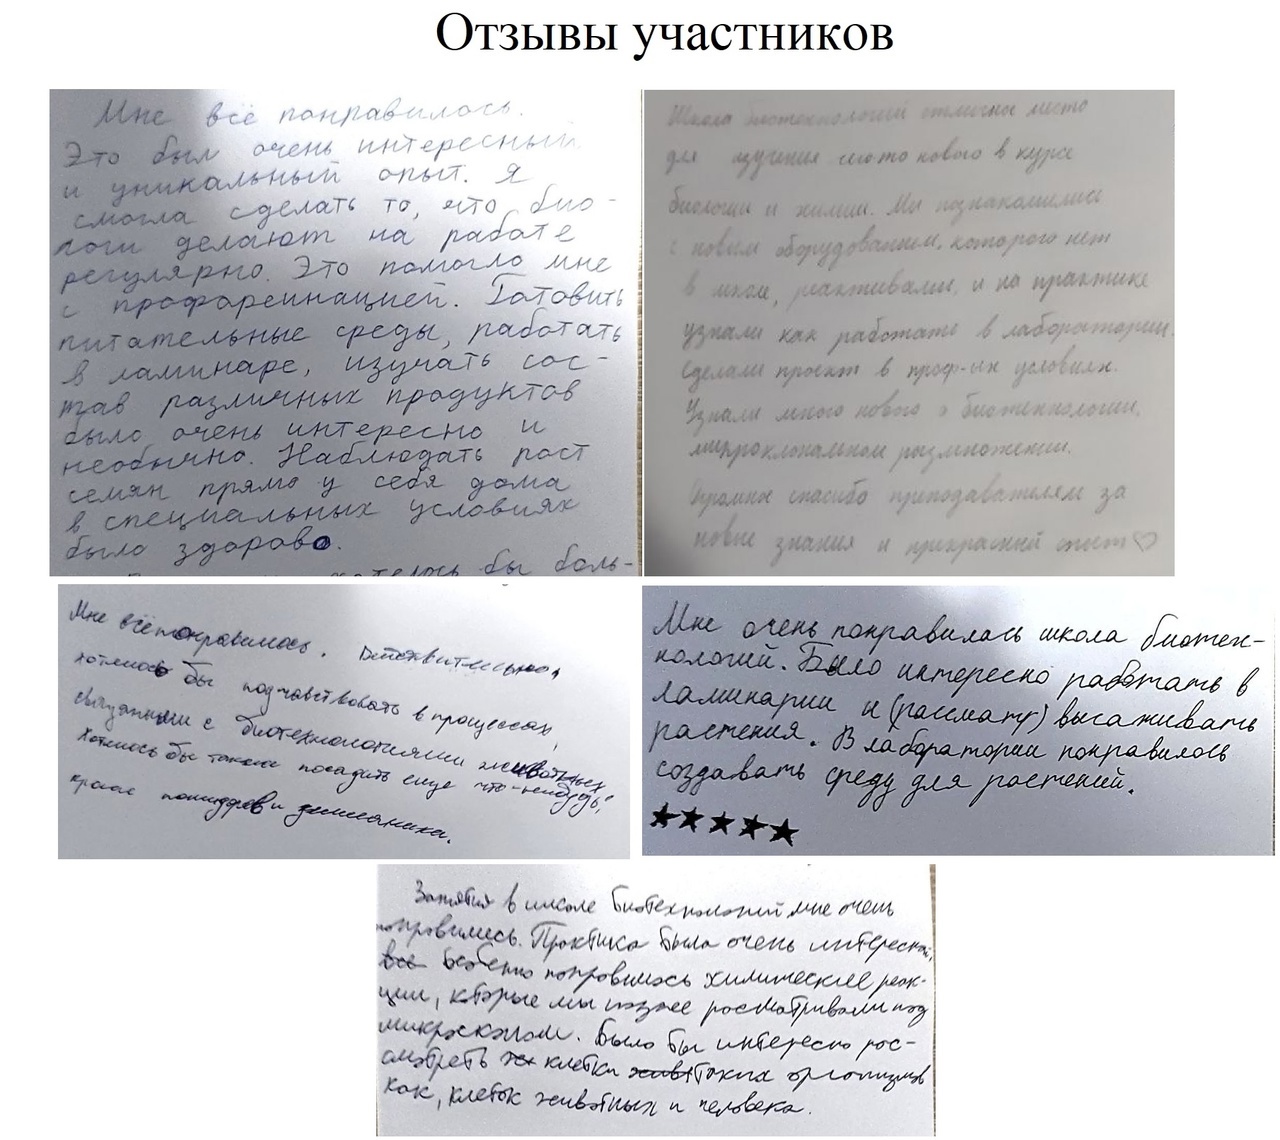 Отзывы участников
Мне всё понравилось.
Это был очень интересный
и уникальный опыт. Я
смогла сделать то, что био-
логи делают на работе
регулярно. Это помогло мне
с профориентацией. Готовить
питательные среды, работать
в ламинаре, изучать сос-
тав различных продуктов
было очень интересно и
необычно. Наблюдать рост
семян прямо у себя дома
в специальных условиях
было здорово.
хотелось бы боль-
Школа биотехнологий отличное место
для изучения чего-то нового в курсе
биологии и химии. Мы познакомились
с новым оборудованием, которого нет
в школе, реактивами, и на практике
узнали как работать в лаборатории.
Сделали проект в проф-ых условиях.
Узнали много нового о биотехнологии,
микроклональном размножении.
Огромное спасибо преподавателям за
новые знания и прекрасный опыт♡
Мне всё понравилось. Действительно,
хотелось бы поучаствовать в процессах,
связанными с биотехнологиями животных.
Хотелось бы также посадить еще что-нибудь,
кроме помидоров и земляники.
Мне очень понравилась школа биотех-
нологий. Было интересно работать в
ламинарии и (рассмату) высаживать
растения. В лаборатории понравилось
создавать среду для растений.
★★★★★
Занятия в школе биотехнологий мне очень
понравились. Практика была очень интересной,
все особенно понравилось химические реак-
ции, которые мы позже рассматривали под
микроскопом. Было бы интересно рас-
смотреть клетки таких организмов
как, клеток животных и человека.